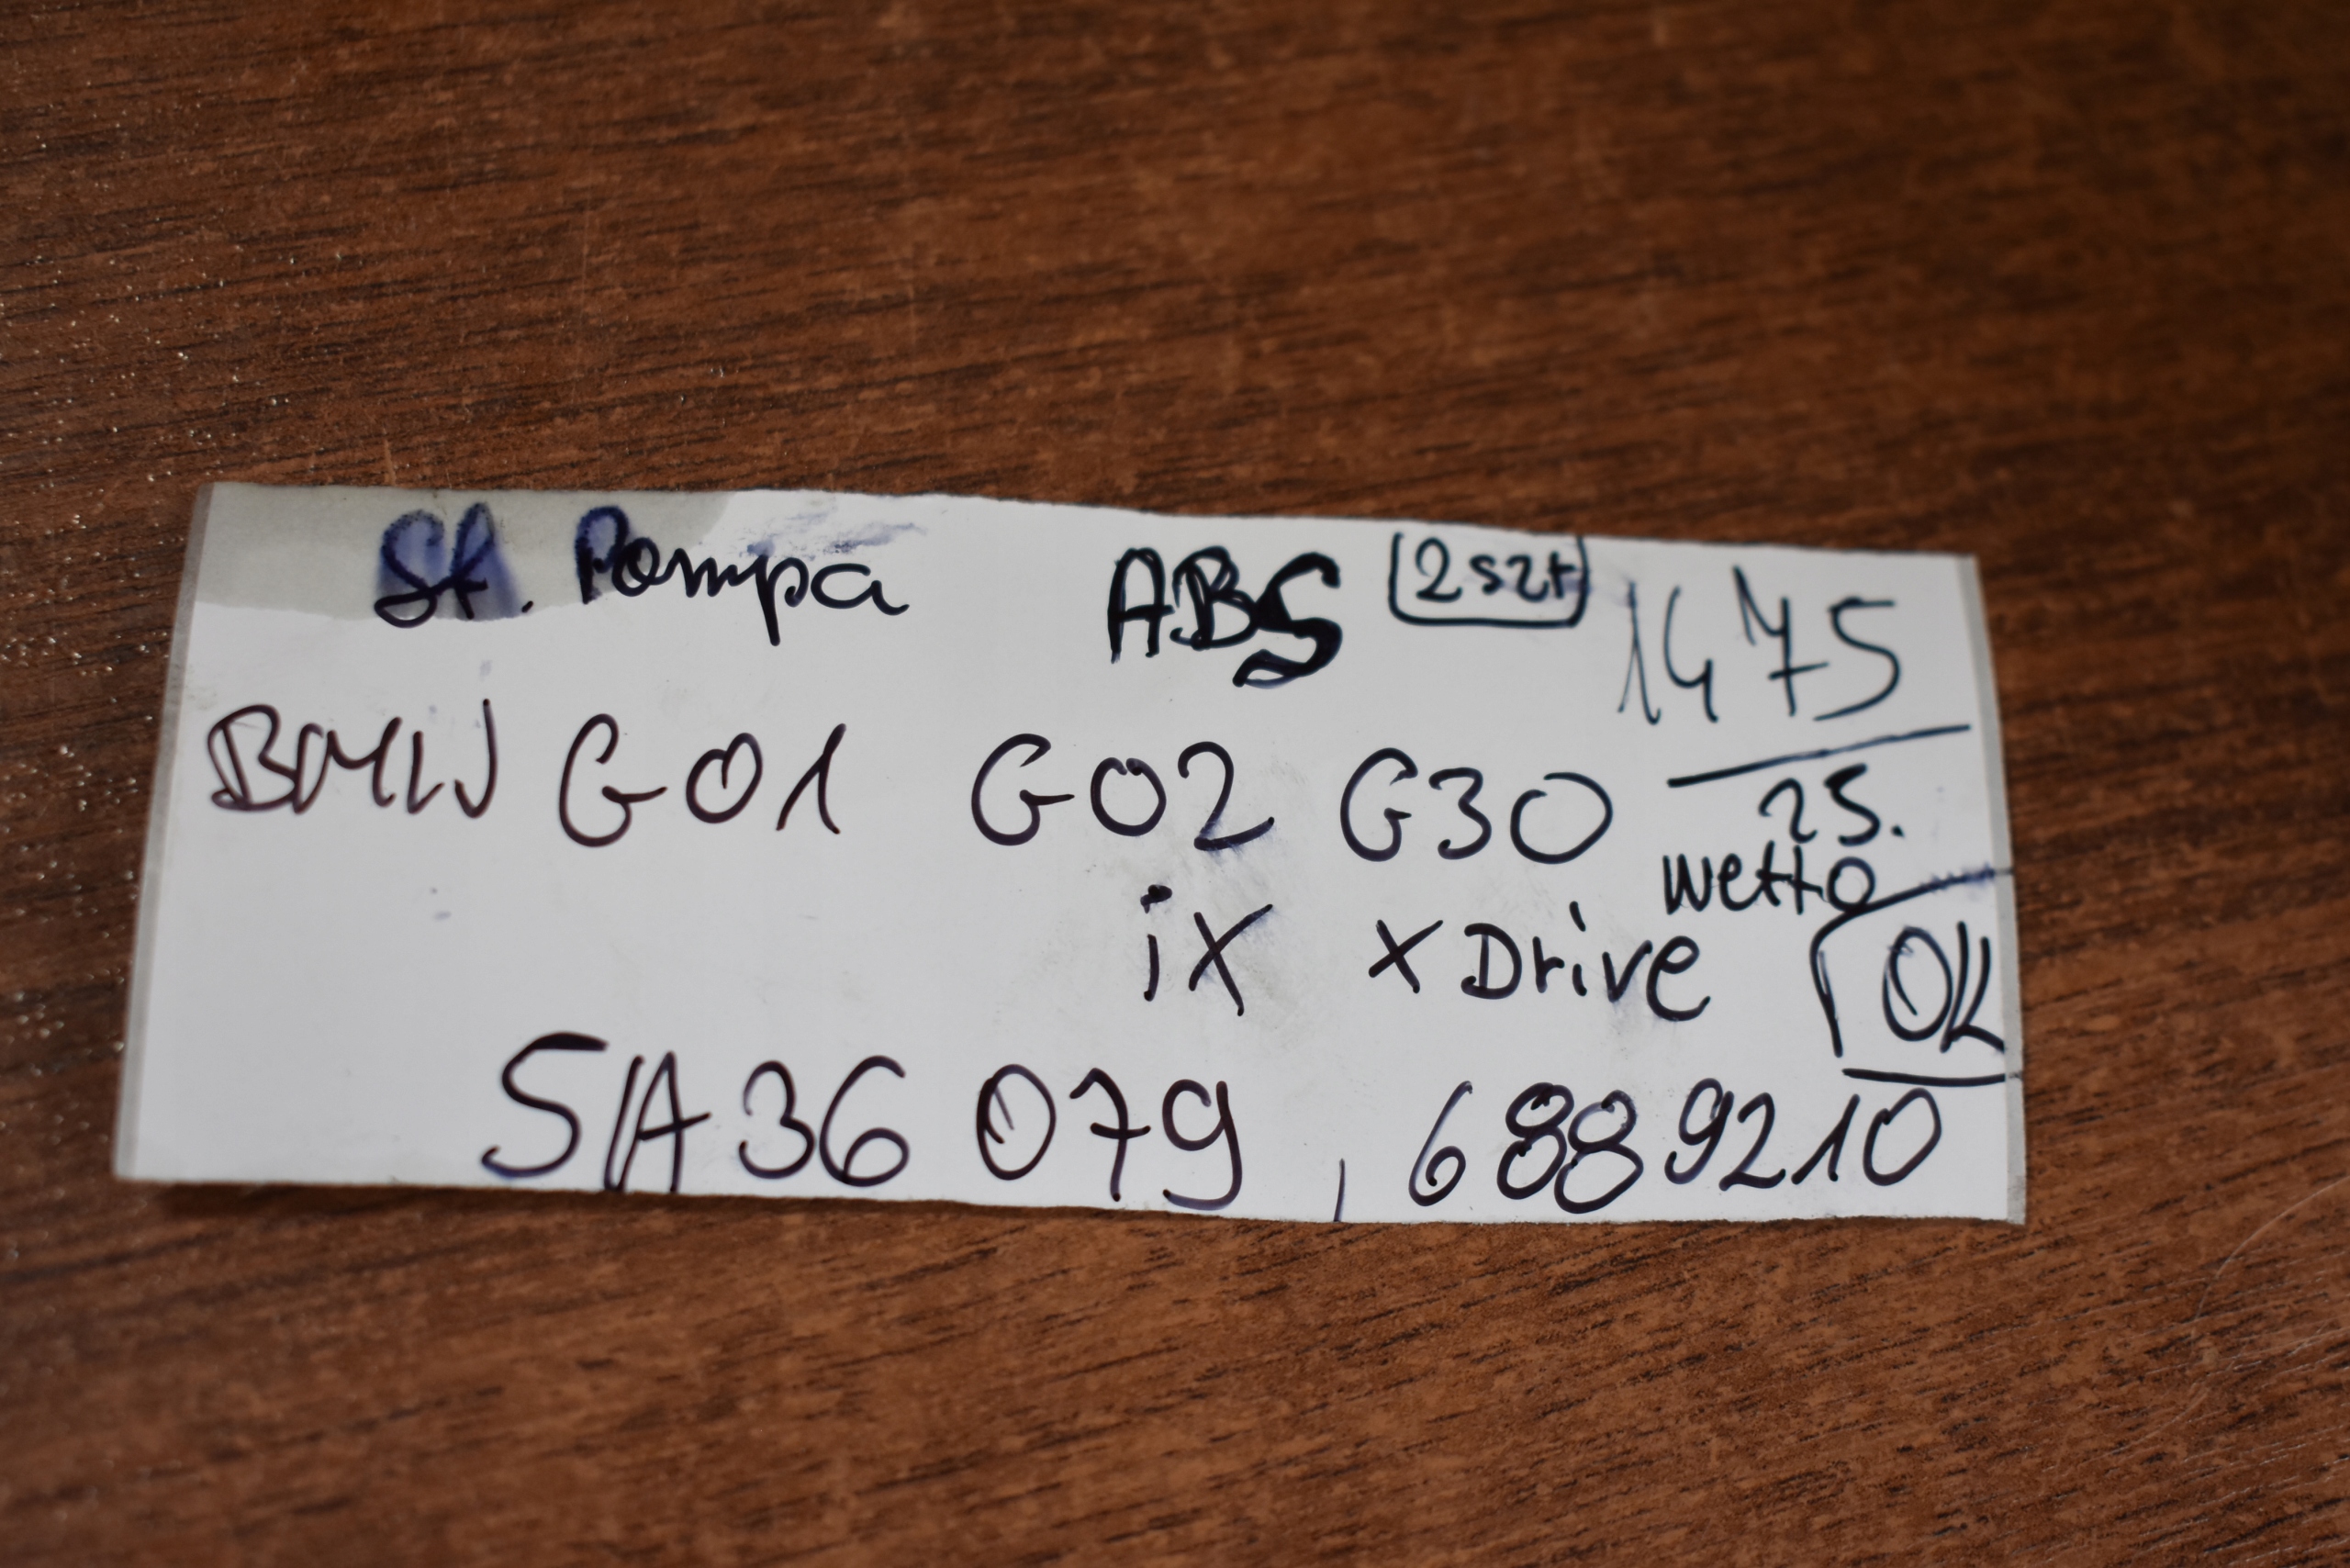 St. Pompa ABS 2szt 1475
BMW G01 G02 G30 25.
netto
iX xDrive OK
5A36 079, 6889210